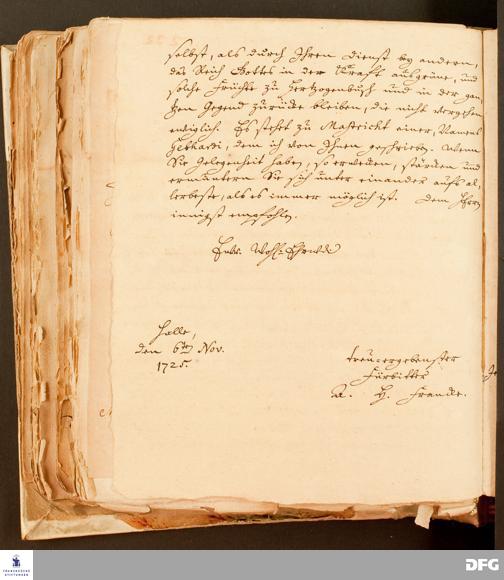 selbst, als durch Ihren Dienst bey andern,
das Reich Gottes in der Krafft aufgehe, und
solche Früchte zu Hertzogenbusch und in der gan-
tzen Gegend zurücke bleiben, die nicht vergehen
ewiglich. Es stehet zu Mastricht einer, Namens
Gebhardi, dem ich von Ihnen geschrieben. Wenn
Sie Gelegenheit haben, so erwecken, stärcken und
ermuntern Sie sich unter einander aufs al-
lerbeste, als es immer möglich ist. Dem Herrn
innigst empfohlen.
Ew. Wohl-Ehrwd
Halle,
den 6ten Nov.
1725.
treu-ergebenster
Fürbitter
A. H. Francke.
FRANCKESCHE
STIFTUNGEN
DFG